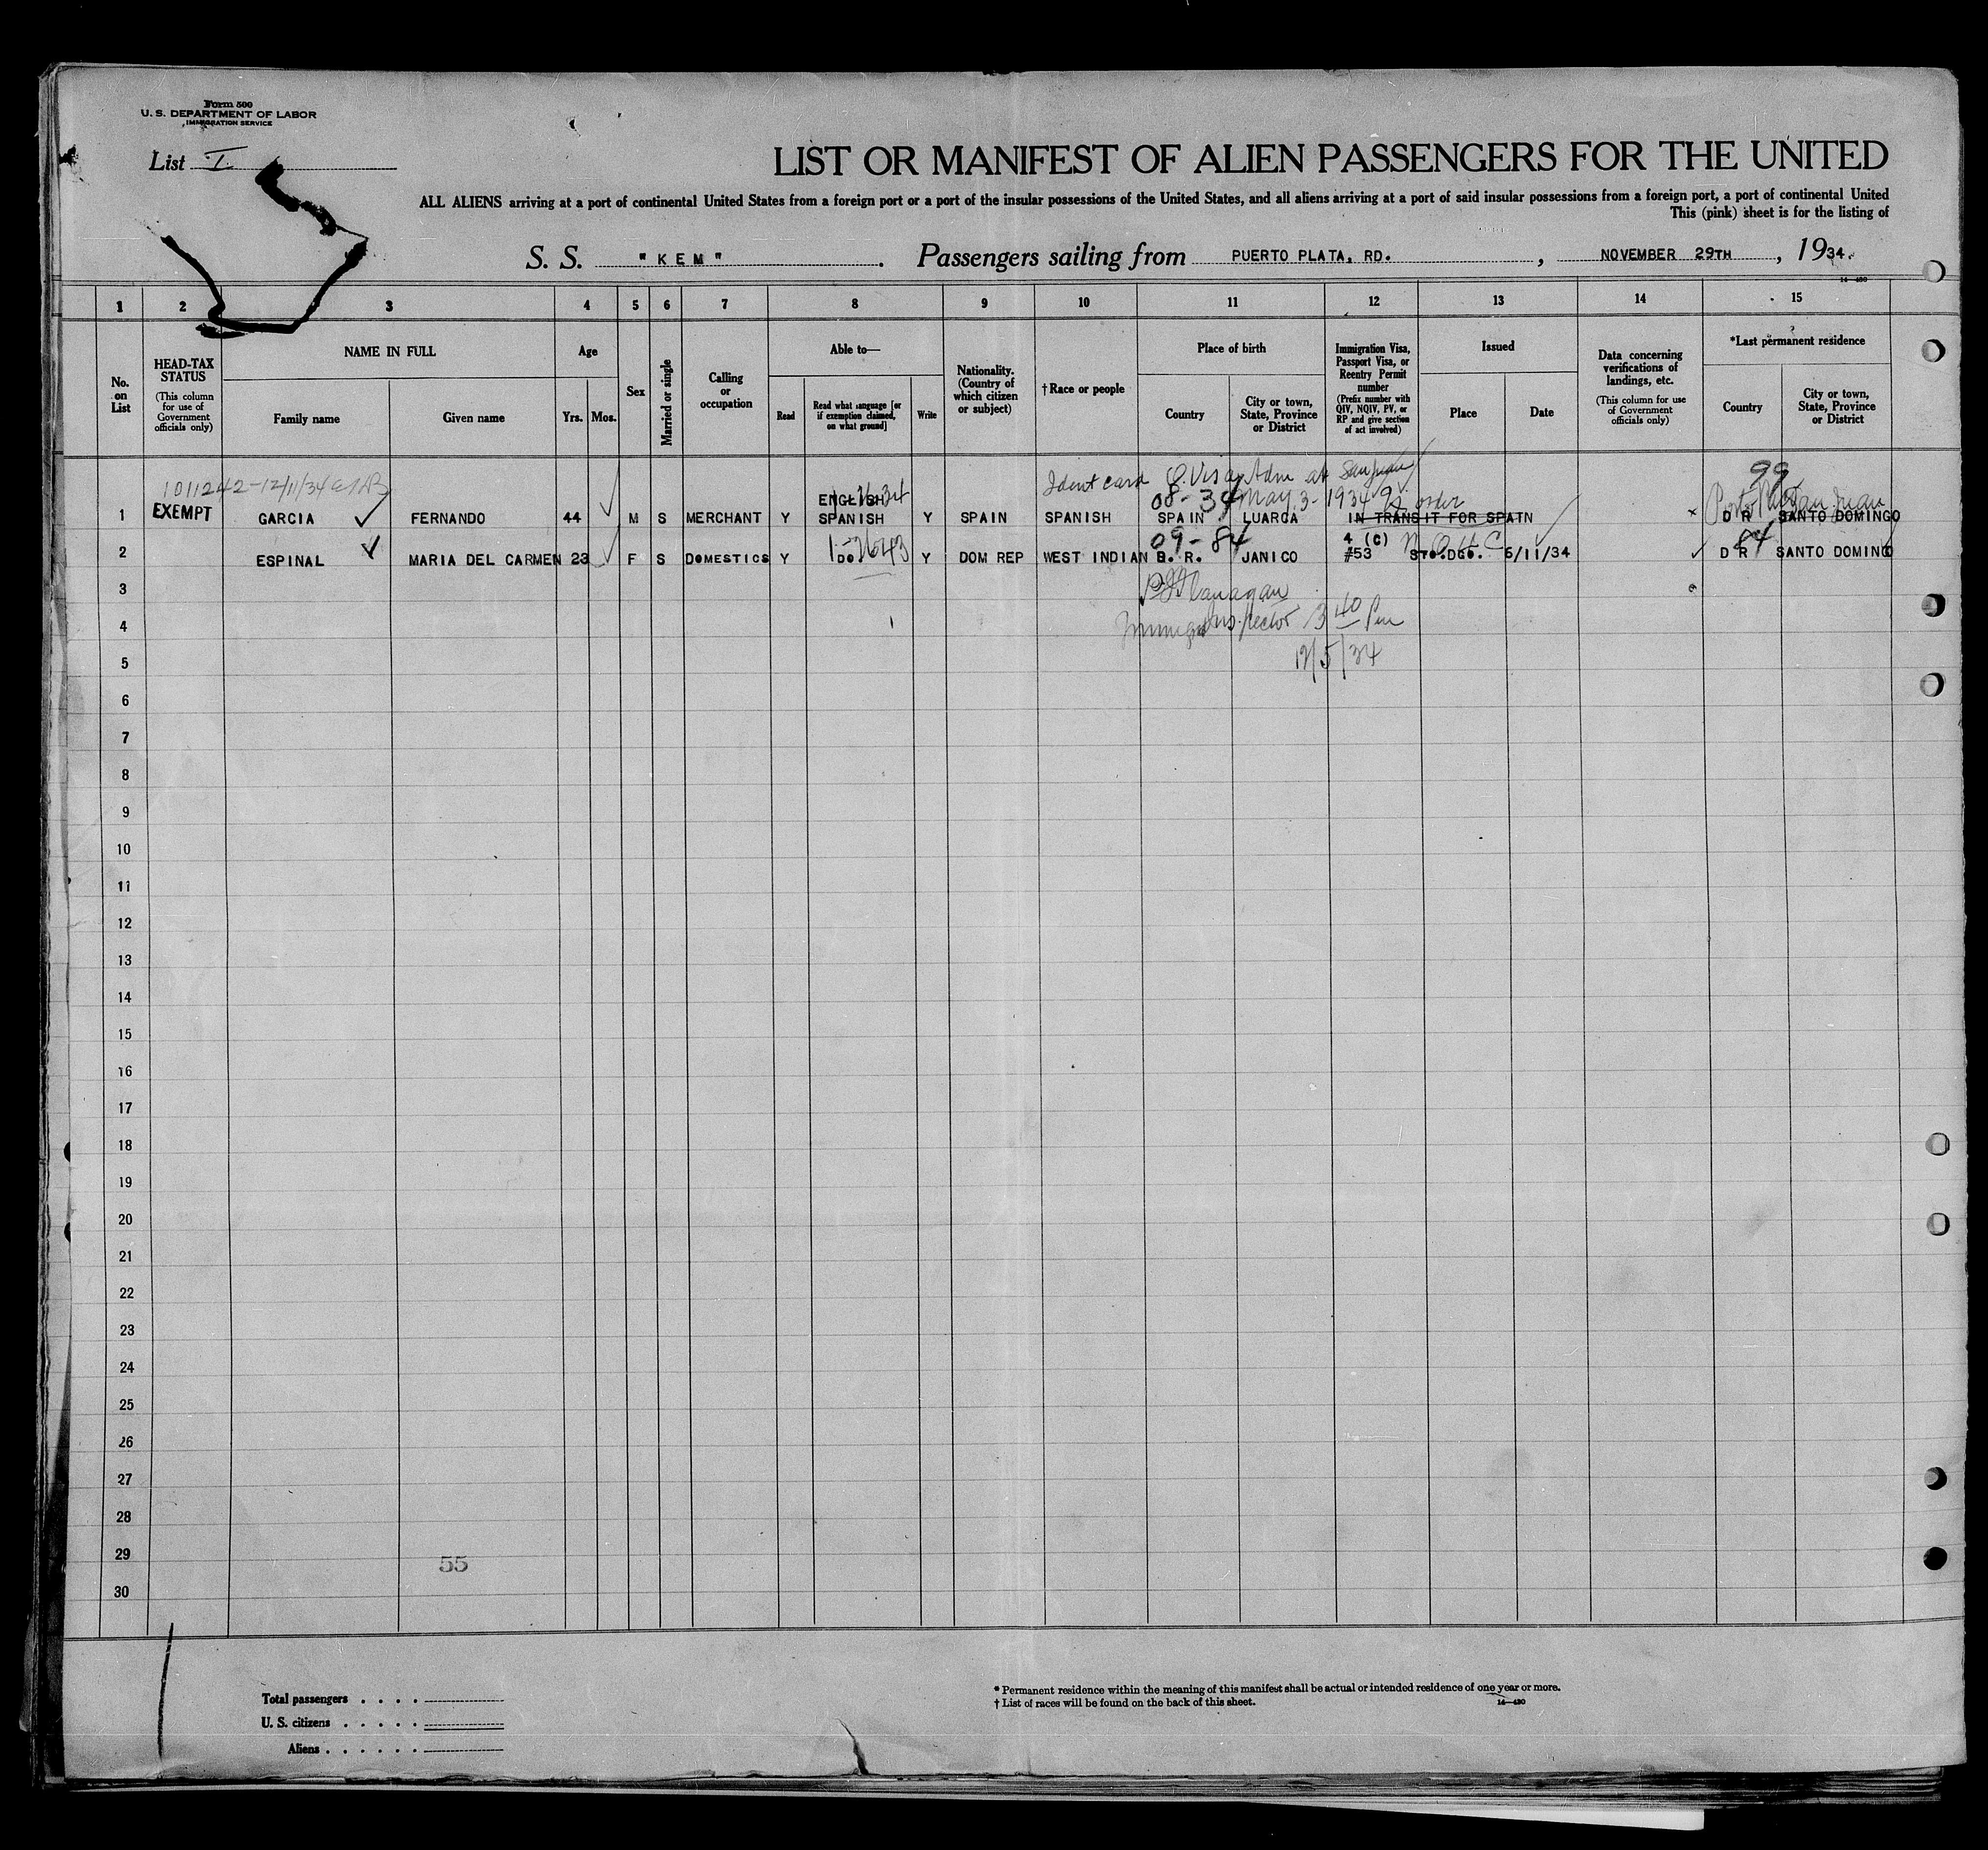 Form 500
U. S. DEPARTMENT OF LABOR
IMMIGRATION SERVICE
List I
LIST OR MANIFEST OF ALIEN PASSENGERS FOR THE UNITED
ALL ALIENS arriving at a port of continental United States from a foreign port or a port of the insular possessions of the United States, and all aliens arriving at a port of said insular possessions from a foreign port, a port of continental United
This (pink) sheet is for the listing of
S. S. "KEM". Passengers sailing from PUERTO PLATA, RD., NOVEMBER 29TH, 1934.
14—430
1 2 3 4 5 6 7 8 9 10 11 12 13 14 15
No. on List
HEAD-TAX STATUS (This column for use of Government officials only)
NAME IN FULL
Family name
Given name
Age
Yrs. Mos.
Sex
Married or single
Calling or occupation
Able to—
Read
Read what language [or if exemption claimed, on what ground]
Write
Nationality. (Country of which citizen or subject)
†Race or people
Place of birth
Country
City or town, State, Province or District
Immigration Visa, Passport Visa, or Reentry Permit number (Prefix number with QIV, NQIV, PV, or RP and give section of act involved)
Issued
Place
Date
Data concerning verifications of landings, etc. (This column for use of Government officials only)
*Last permanent residence
Country
City or town, State, Province or District
1011242-12/11/34
Ident card Visa Adm at San Juan
99
ENGLISH
08-34 May 3-1934 order
Porto Rico San Juan
1 EXEMPT GARCIA FERNANDO 44 M S MERCHANT Y SPANISH Y SPAIN SPANISH SPAIN LUARCA IN TRANSIT FOR SPAIN D R SANTO DOMINGO
09-84 4 (C) 84
2 ESPINAL MARIA DEL CARMEN 23 F S DOMESTICS Y DO Y DOM REP WEST INDIAN D. R. JANICO #53 STO.DGO. 6/11/34 D R SANTO DOMINGO
3
Flanagan
4 Immigrant Inspector 3 40 Pm
5 12/5/34
6
7
8
9
10
11
12
13
14
15
16
17
18
19
20
21
22
23
24
25
26
27
28
29
55
30
Total passengers . . . .
U. S. citizens . . . . .
Aliens . . . . . .
* Permanent residence within the meaning of this manifest shall be actual or intended residence of one year or more.
† List of races will be found on the back of this sheet.
14—430